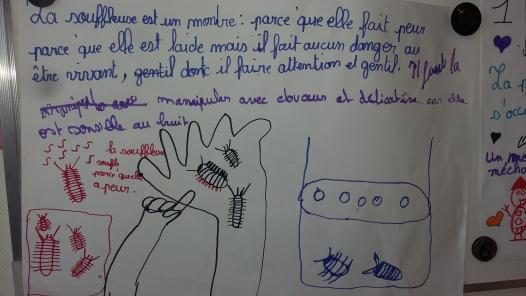 La souffleuse est un montre : parce que elle fait peur
parce que elle est laide mais il fait aucun danger au
être vivant, gentil donc il faire attention et gentil. Il faut la
manipuler avec douceur et délicatèse car elle
est sensible au bruit
la souffleuse
souffle
parce qu'elle
a peur.
1
La p
s'occ
un mo
mécha
6